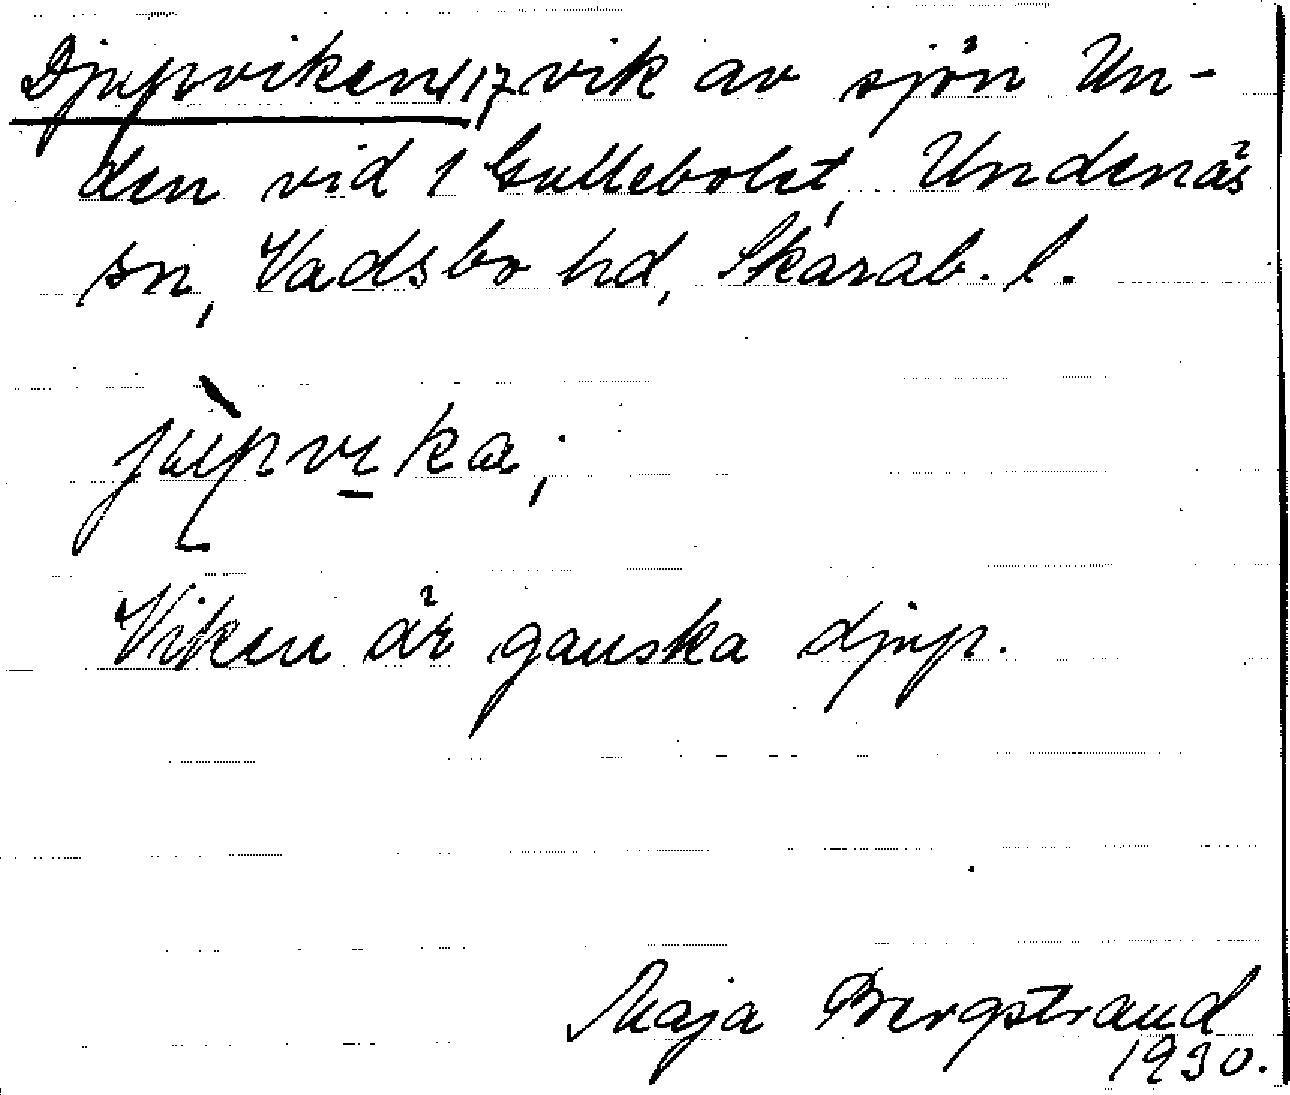 Djupviken, 17, vik av sjön Un-
den vid 1 Gullebolet, Undenäs
sn, Vadsbo hd, Skarab. l.
jùpvika;
Viken är ganska djup.
Maja Bergstrand
1930.